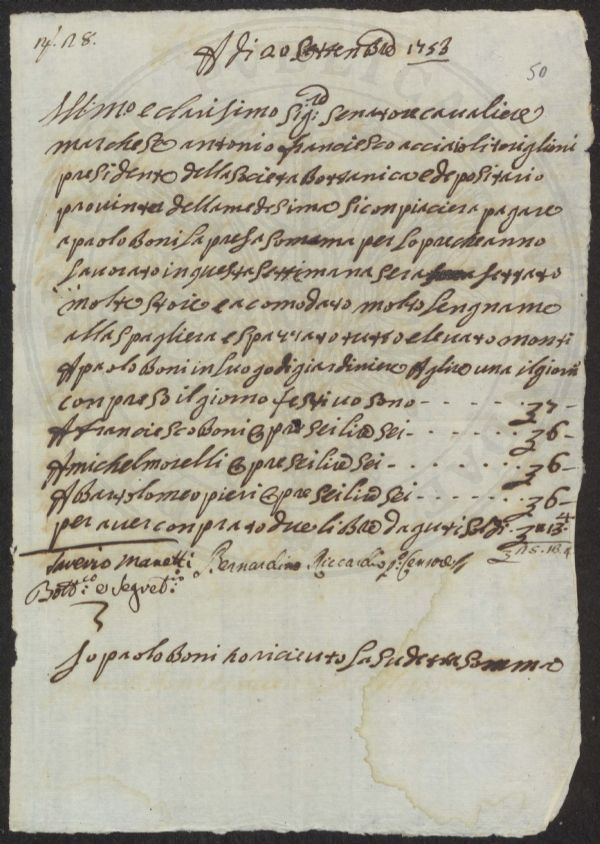 N.° 128.
A di 20 Settenbre 1753
50
Illmo e clarisimo Sig:re Senatore cavaliere
marchese antonio franciesco acciaioli toriglioni
presidente della Societa Bottanica e depositario
pro della medesima Si conpiacera pagare
a paolo Boni La presa Somma per Lopre che anno
Lavorato in questa Settimana Sera serrato
molte Stoie e acomodato molto Lengname
alla Spagliera e Spazzato tutto e levato monti
A paolo Boni in Luogo di giardiniere A lire una il giorno
conpreso il giorno festivo sono - - - - 7 -
A franciesco Boni Opre Sei lire Sei - - - - 6 -
A michel morelli Opre Sei lire Sei - - - - 6 -
A Bartolomeo pieri Opre Sei lire Sei - - - - 6 -
per aver conprato due libre daguti Soldi - 13. 4
25. 13. 4
Saverio Manetti Bernardino Riccardio
Bott:co e Segret:rio
Io paolo Boni o riceuto La Sudetta Somma